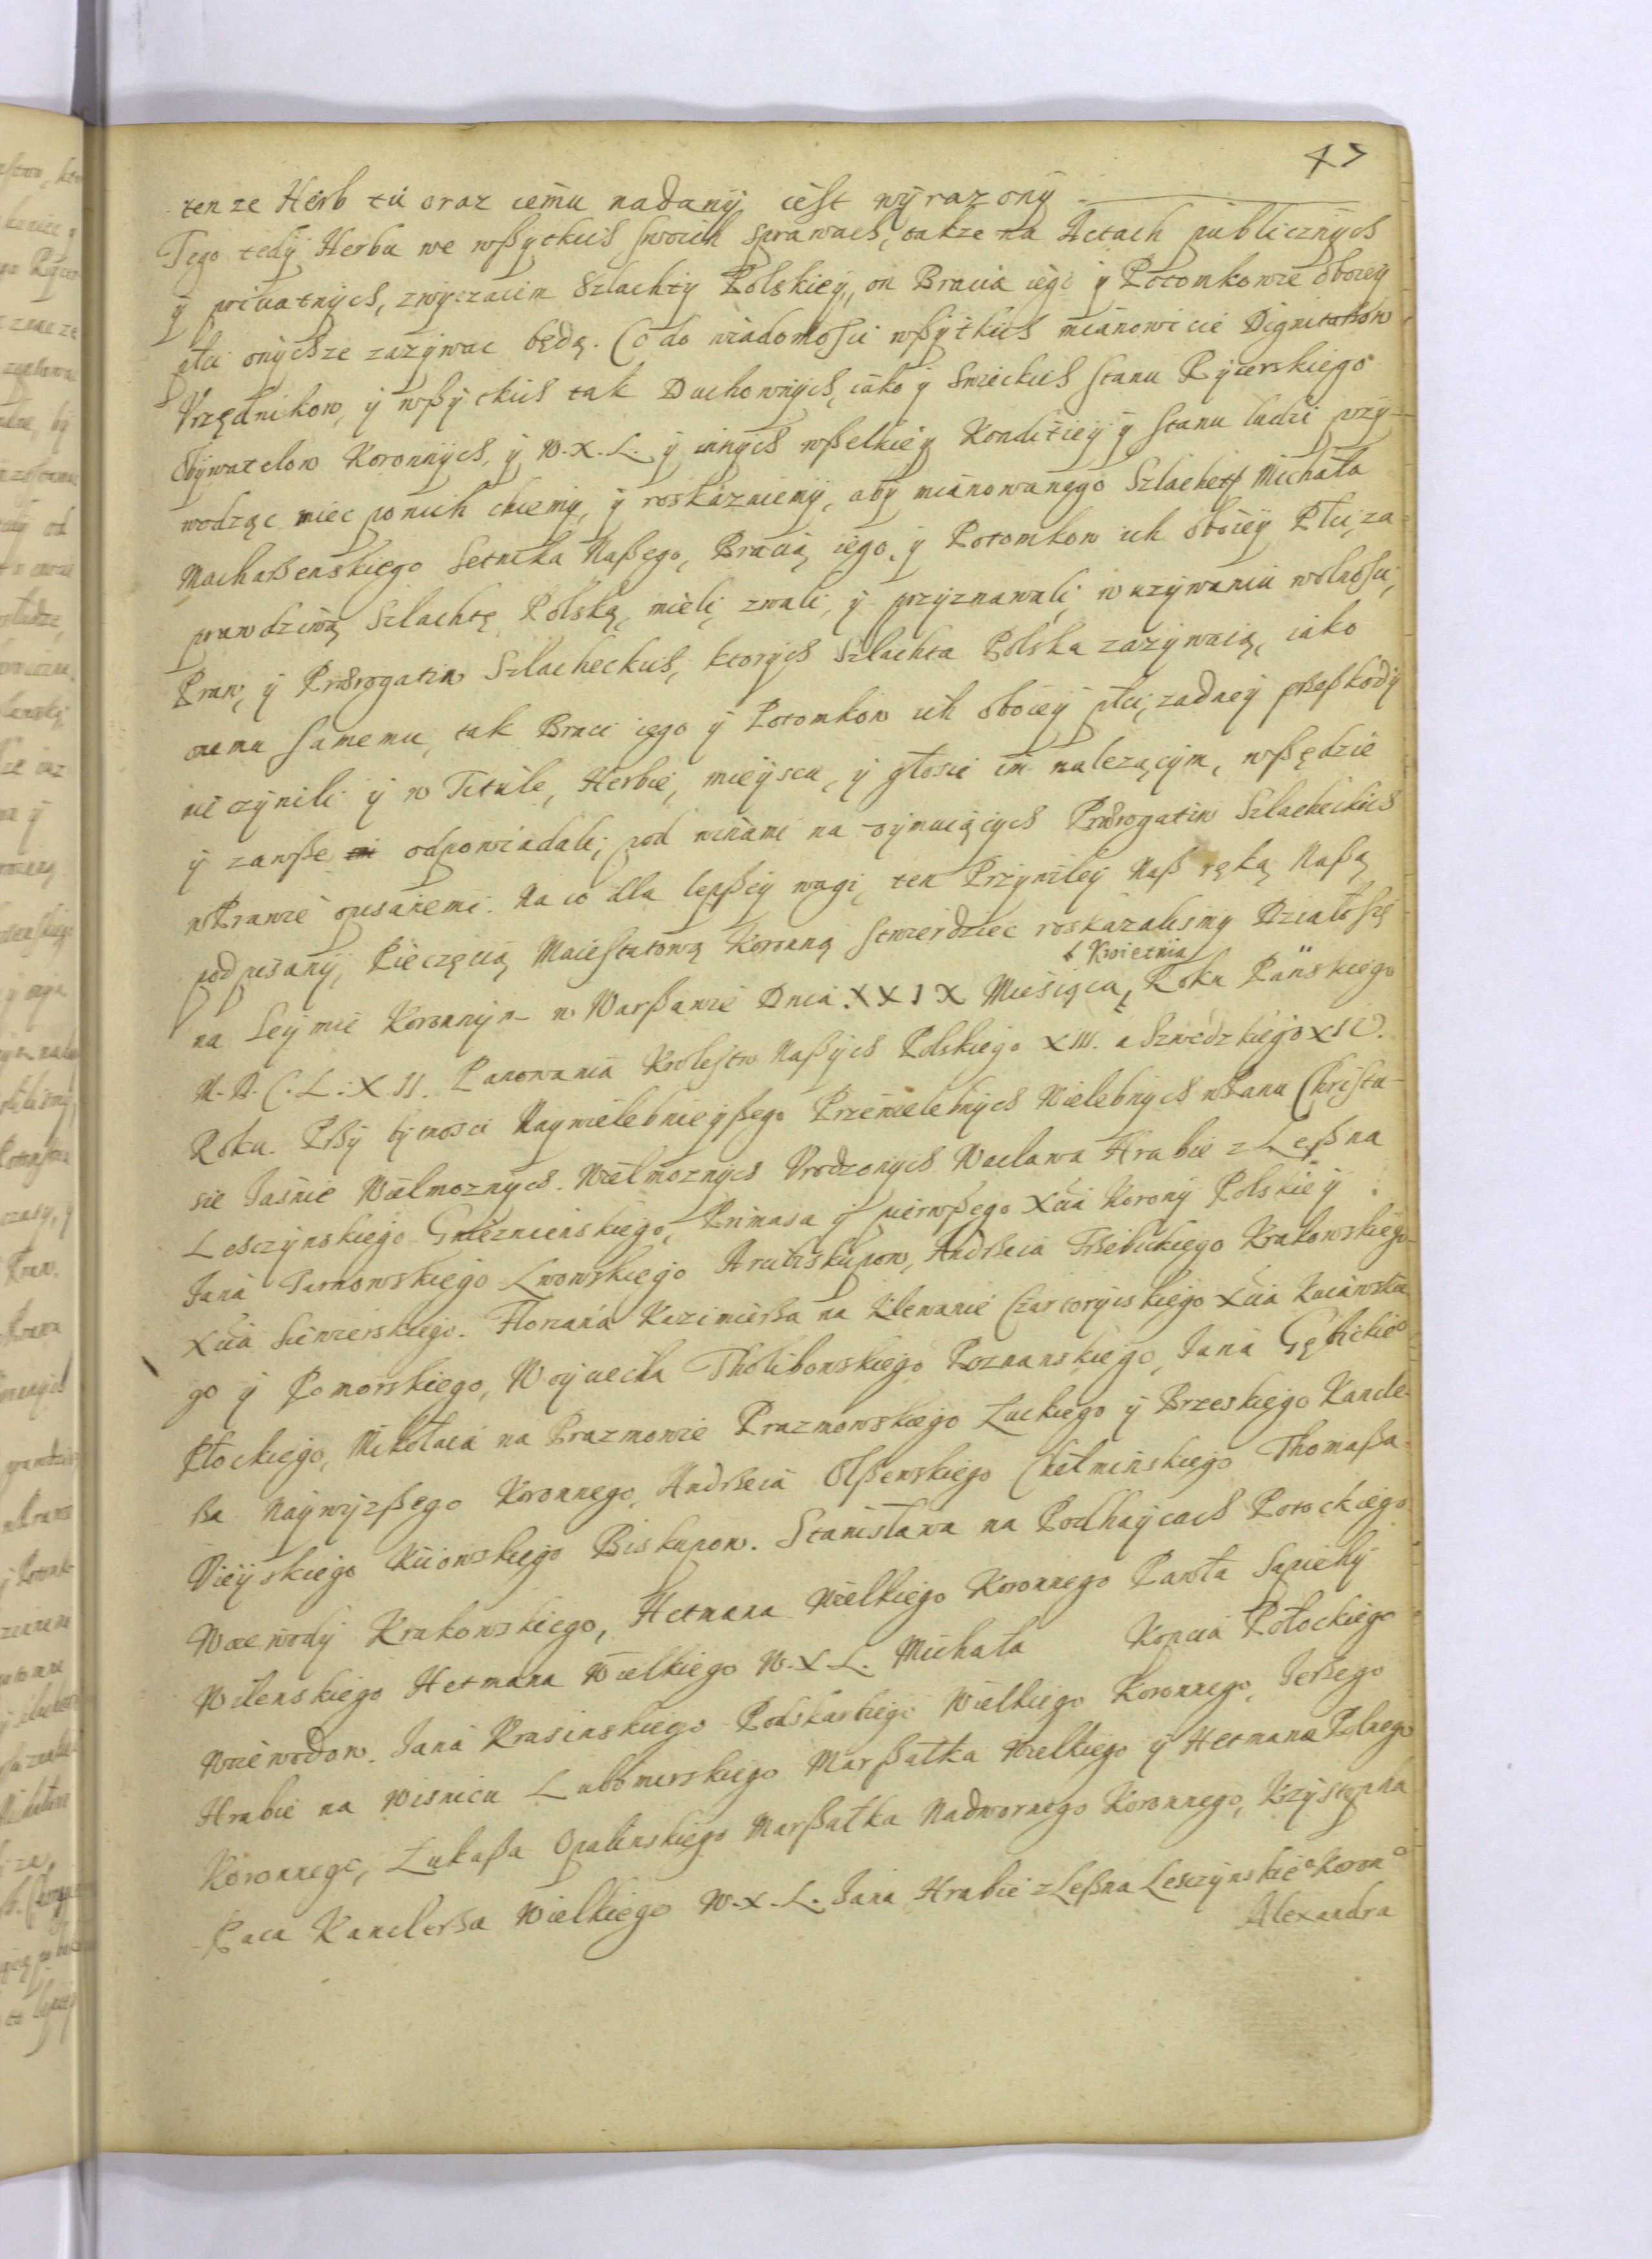 47
tenze Herb tu oraz iemu nadany iest wyrazony
Tego tedy Herbu we wßytkich swoich sprawach, także na Actach publicznych
y privatnych, zwyczaiem Szlachty Polskiey, on Bracia iego y Potomkowie oboiey
płci onychze zazywac będą. Co do wiadomosci wßytkich mianowicie Dignitarżow
Vrzędnikow, y wßytkich tak Duchownych, iako y Swieckich stanu Rycerskiego
Obywatelow Koronnych, y W. X. L. y innych wßelkiey Konditiey y stanu ludzi przy-
wodząc miec po nich chcemy, y roskazuiemy, aby mianowanego Szlachetß Michała
Machaßenskiego Setnika Naßego, Bracią iego, y Potomkow ich oboiey Płci, za
prawdziwą Szlachtę Polską, mieli, zwali, y przyznawali, w uzywaniu wolnosci,
Praw, y Prærogatiw Szlacheckich, ktorych Szlachta Polska zazywaią, iako
onemu samemu, tak Braci iego y Potomkow ich oboiey płci, zadney przeßkody
nie czynili y w Titule, Herbie, mieyscu, y głosie im nalezącym, wßędzie
y zawße odpowiadali; pod winami na uymuiących Prærogatiw Szlacheckich
w Prawie opisanemi. Na co dla lepßey wagi, ten Przywiley Naß ręką Naßą
podpisany, Pieczęcią Maiestatową Koronną stwierdziec roskazalismy Działo się
na Seymie Koronnym w Warßawie Dnia XXIX Miesiąca Kwietnia Roku Pańskiego
M. D. C. L: X II. Panowania Krolestw Naßych Polskiego XIII. a Szwedzkiego XIV.
Roku. Przy bytnosci Naywielebnieyßego Przewielebnych Wielebnych w Panu Christu-
sie Jaśnie Wielmoznych. Wielmoznych Vrodzonych Wacława Hrabie z Leßna
Lesczynskiego Gnieznienskiego, Primasa y pierwßego Xcia Korony Polskiey
Jana Tarnowskiego Lwowskiego Arcibiskupow, Andrzeia Trzebickiego Krakowskiego
Xcia Siewierskiego. Floriana Kazimierza na Klewanie Czartoryiskiego Xcia Kuiawskie
go y Pomorskiego, Woyciecha Tholibowskiego Poznanskiego, Jana Gębickieo
Płockiego, Mikołaia na Prazmowie Prazmowskiego Łuckiego y Brzeskiego Kancle-
rza Naywyzßego Koronnego, Andrzeia Olßewskiego Chełmińskiego Thomaßa
Vieyskiego Kiiowskiego Biskupow. Stanisława na Podhaycach Potockiego
Woiewody Krakowskiego, Hetmana Wielkiego Koronnego Pawła Sapiehy
Wilenskiego Hetmana Wielkiego W. X. L. Michała Kopcia Połockiego
Woiewodow. Jana Krasinskiego Podskarbiego Wielkiego Koronnego, Jerzego
Hrabie na Wisniczu Lubomirskiego Marßałka Wielkiego y Hetmana Polnego
Koronnego, Łukaßa Opalinskiego Marßałka Nadwornego Koronnego, Krzysztopha
Paca Kanclerza Wielkiego W. X. L. Jana Hrabie z Leßna Lesczynskieo Korono
Alexandra